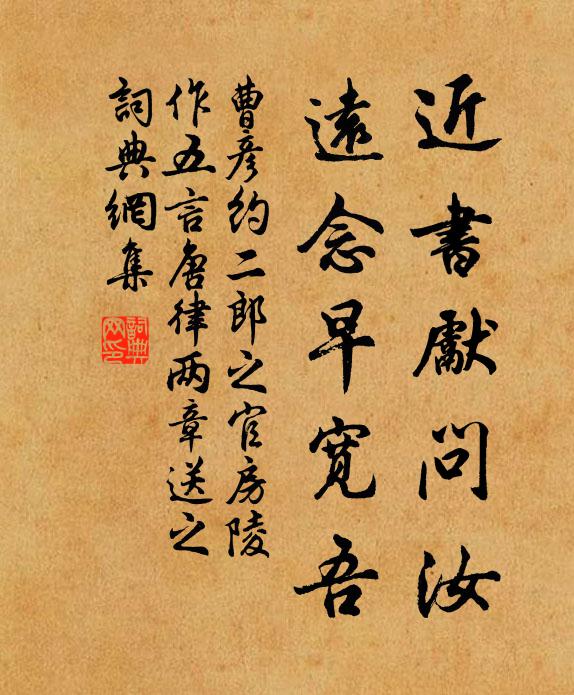 近書獻問汝
遠念早寬吾
曹彥約二郎之官房陵
作五言唐律两章送之
詞典網集
詞典网印